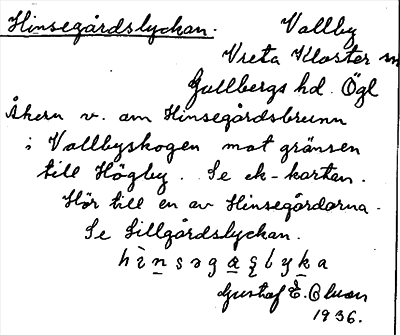 Hinsegårdslyckan.
Vallby
Vreta Kloster sn
Gullbergs hd. Ögl
Åkern v. om Hinsegårdsbrunn
i Vallbyskogen mot gränsen
till Högby. Se ek-kartan.
Hör till en av Hinsegårdarna.
Se Lillgårdslyckan.
Gustaf E. Olson
1936.